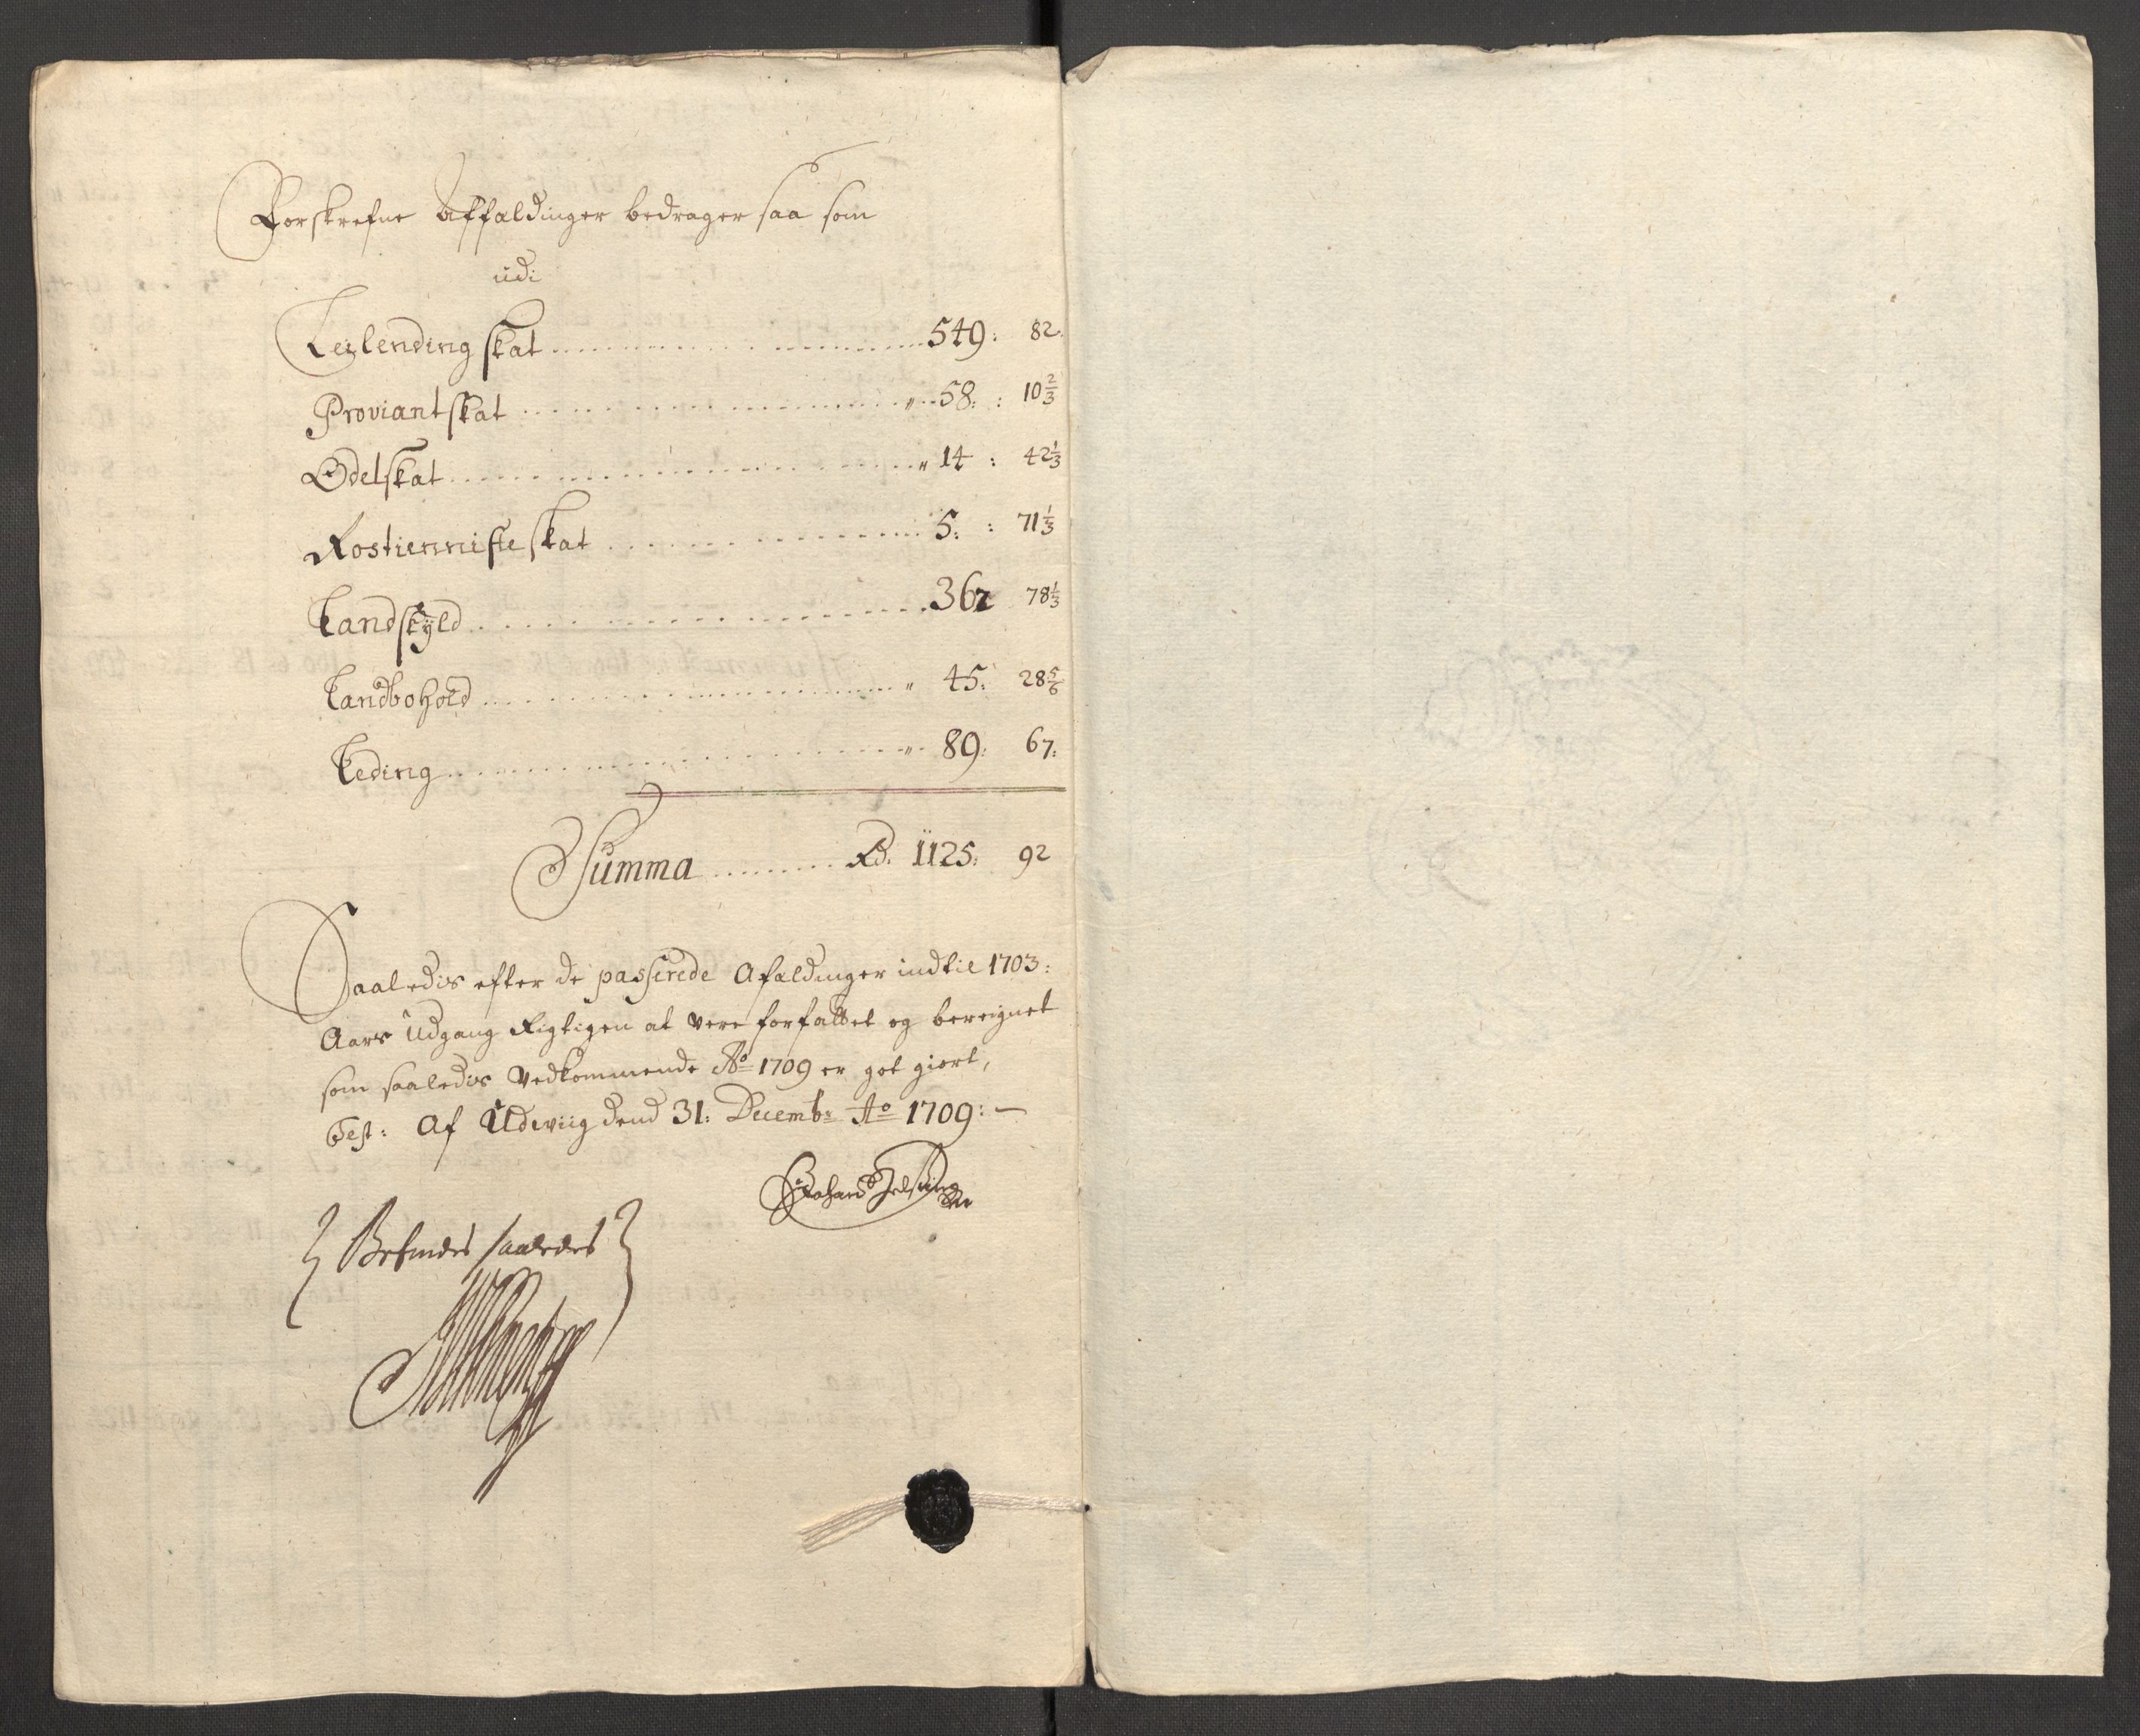 Forskrefne Affaldinger bedrager saa som
udi
Leilending skat 549: 82:
Proviantskat " 58: : 10 2/3
Odelskat " 14 : 42 1/3
Rostienniste skat 5: : 71 1/3
Landskÿld 362 78 1/3
Landbohold " 45: 28 5/6
Leding " 89: 67:
Summa Rd: 1125: 92
Saaledis efter de passerede Afaldinger indtil 1703:
Aars Udgang Rigtigen at Vere forfattet og bereignet
som saaledis Vedkommende Ao 1709 er got giort,
Test: Af Udwiig dend 31: Decemb: Ao 1709: —
Befindes saaledes